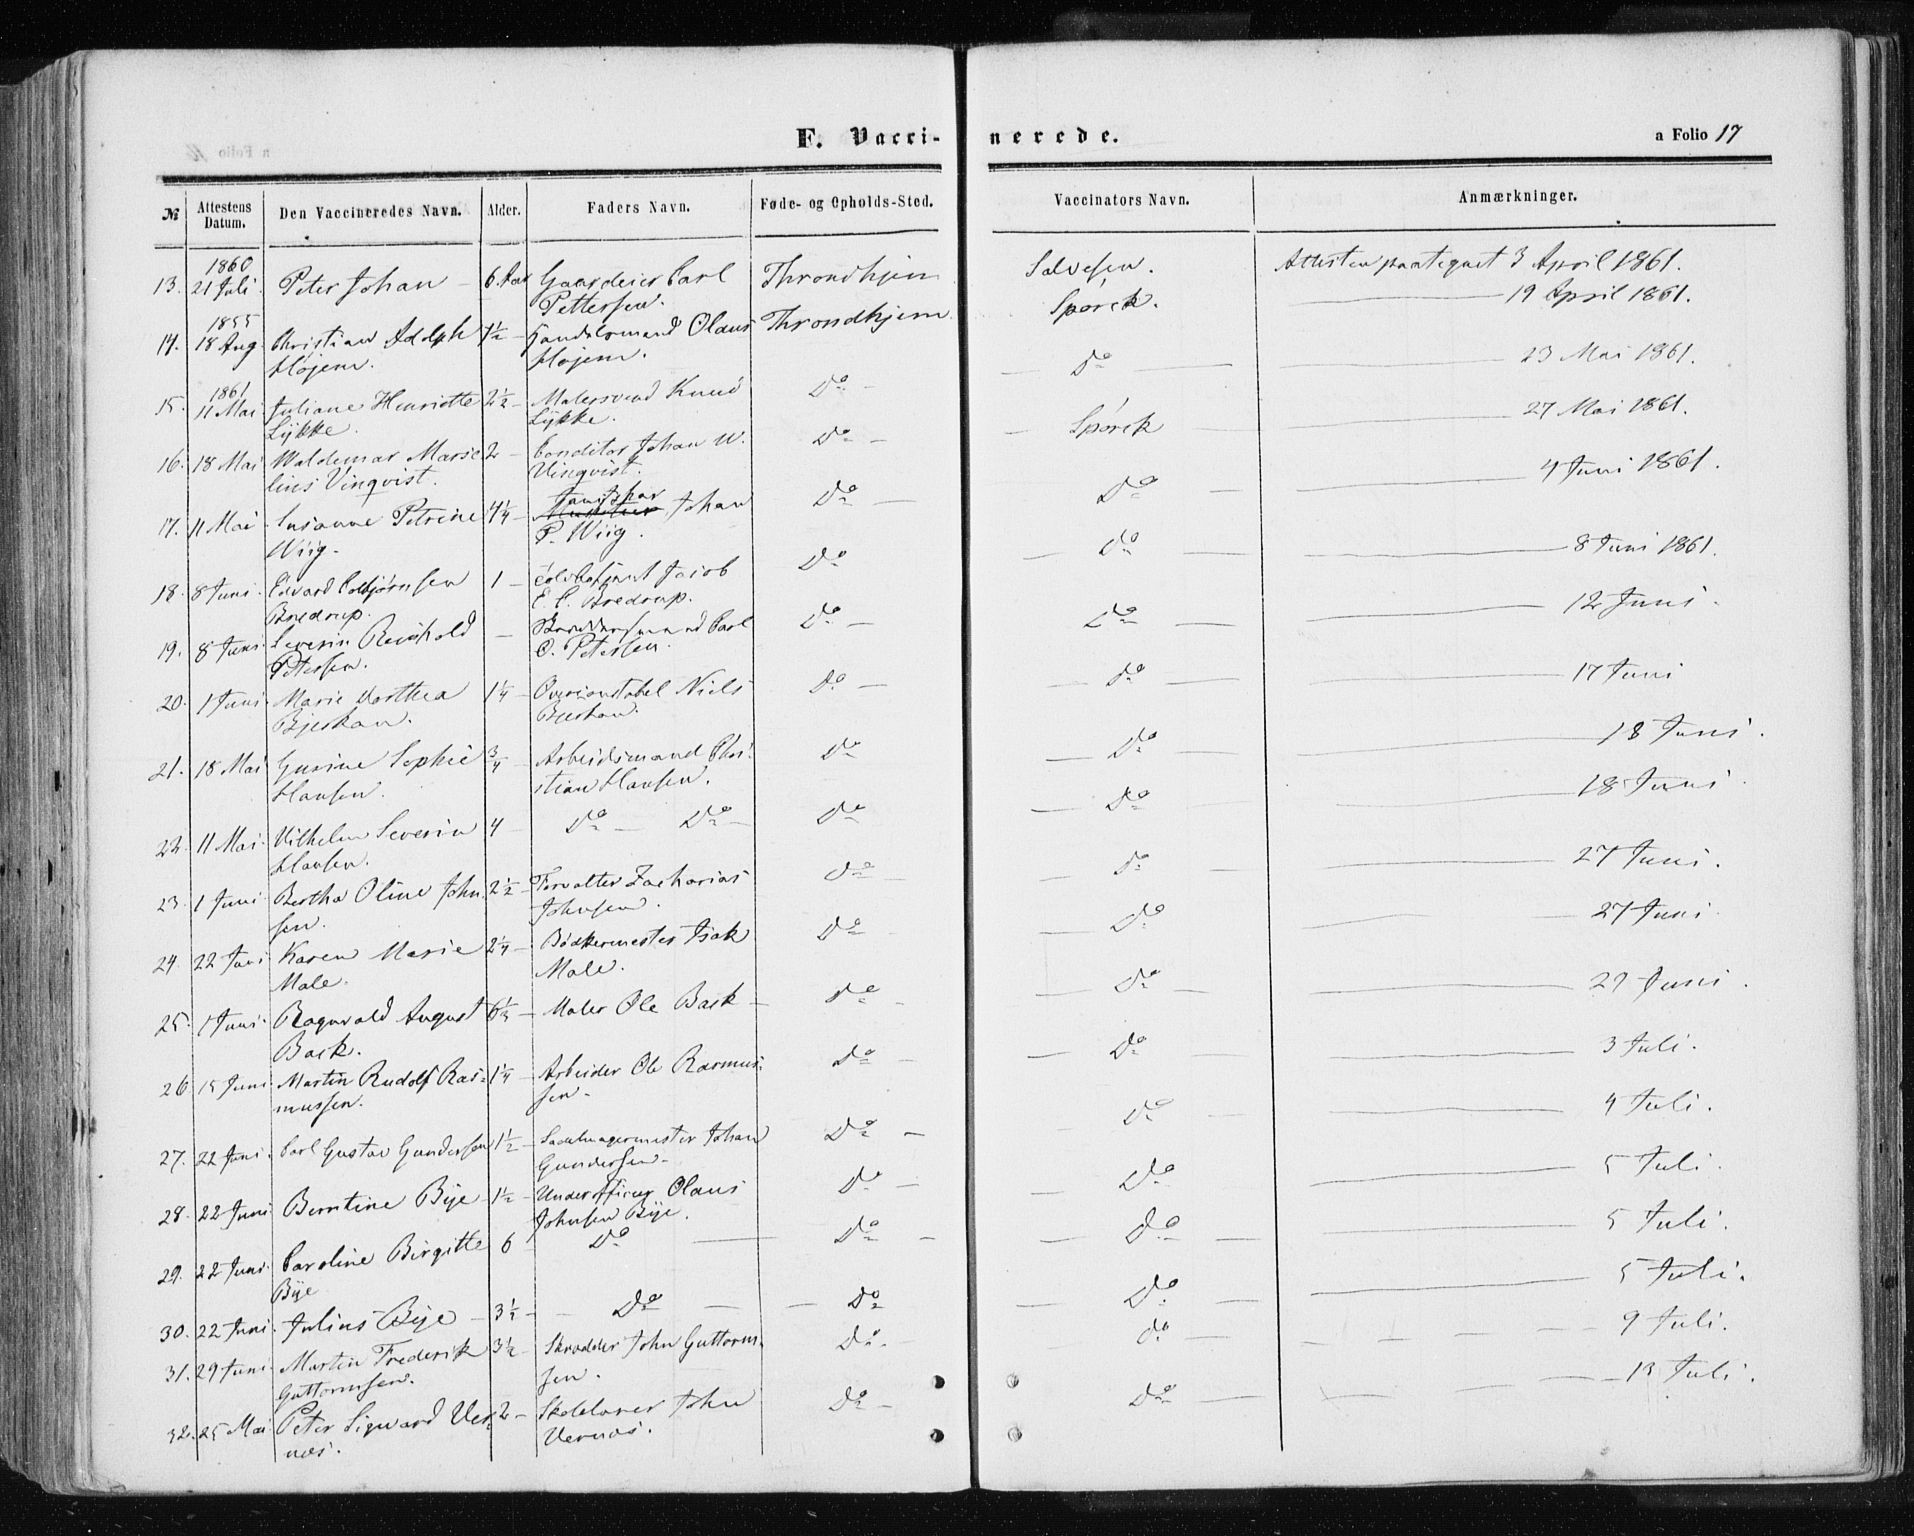 F. Vacci-nerede.
a Folio 17
№ Attestens Datum. Den Vaccineredes Navn. Alder. Faders Navn. Føde- og Opholds-Sted. Vaccinators Navn. Anmærkninger.
1860
13. 21 Juli. Peter Johan - 6 Aar Gaardeier Carl Throndhjem Salvesen. Attesten paategnet 3 April 1861.
Pettersen.
1855
14. 18 Aug. Christian Adolph 1½ - Handelsmand Olaus Throndhjem Spørck. 19 April 1861.
Højem. Højem.
1861
15. 11 Mai Juliane Henriette 2½ - Malersvend Knud Do - Do 23 Mai 1861.
Lykke. Lykke.
16. 18 Mai Waldemar Marse- 2 - Conditor Johan W. Do - Spørck 27 Mai 1861.
lius Vinqvist. Vinqvist.
17. 11 Mai Susanne Petrine 4¼ - Johan Do - Do 4 Juni 1861.
Wiig. P. Wiig.
18. 8 Juni. Edvard Colbjørnsen 1 - Jacob Do Do 8 Juni 1861.
Bredrup. E. C. Bredrup.
19. 8 Juni. Severin Reinhold - Carl Do - Do 12 Juni.
Petersen. O. Petersen.
20. 1 Juni. Marie Dorthea 1¼ - Overconstabel Niels Do - Do 17 Juni
Bjerkan. Bjerkan.
21. 18 Mai Gusine Sophie ¾ - Arbeidsmand Chri- Do Do 18 Juni.
Hansen. stian Hansen.
22. 11 Mai. Vilhelm Severin 4 - Do - Do - Do Do 18 Juni.
Hansen.
23. 1 Juni Bertha Oline John- 2½ - Forvalter Zacharias Do - Do 27 Juni.
sen. Johnsen.
24. 22 Juni Karen Marie 2¼ - Bødkermester Isak Do Do 27 Juni.
Male. Male.
25. 1 Juni. Ragnvald August 6½ - Maler Ole Bask - Do - Do 29 Juni.
Bask.
26. 15 Juni Martin Rudolf Ras- 1¼ - Arbeider Ole Rasmus- Do - Do 3 Juli.
mussen. sen.
27. 22 Juni. Carl Gustav Gundersen 1½ - Sadelmagermester Johan Do - Do 4 Juli.
Gundersen.
28. 22 Juni Berntine Bye - 1½ - Underofficer Olaus Do - Do 5 Juli.
Johnsen Bye.
29. 22 Juni. Caroline Birgitte 6 - Do - Do - Do 5 Juli.
Bye
30. 22 Juni. Julius Bye - 3½ - Do - Do Do 5 Juli.
31. 29 Juni Martin Frederik 3½ - Skrædder John Guttorm- Do. Do 9 Juli.
Guttormsen. sen.
32. 25 Mai Peter Sigvard Ver- 2 - Skolelærer John Do - Do 13 Juli.
næs. Vernæs.